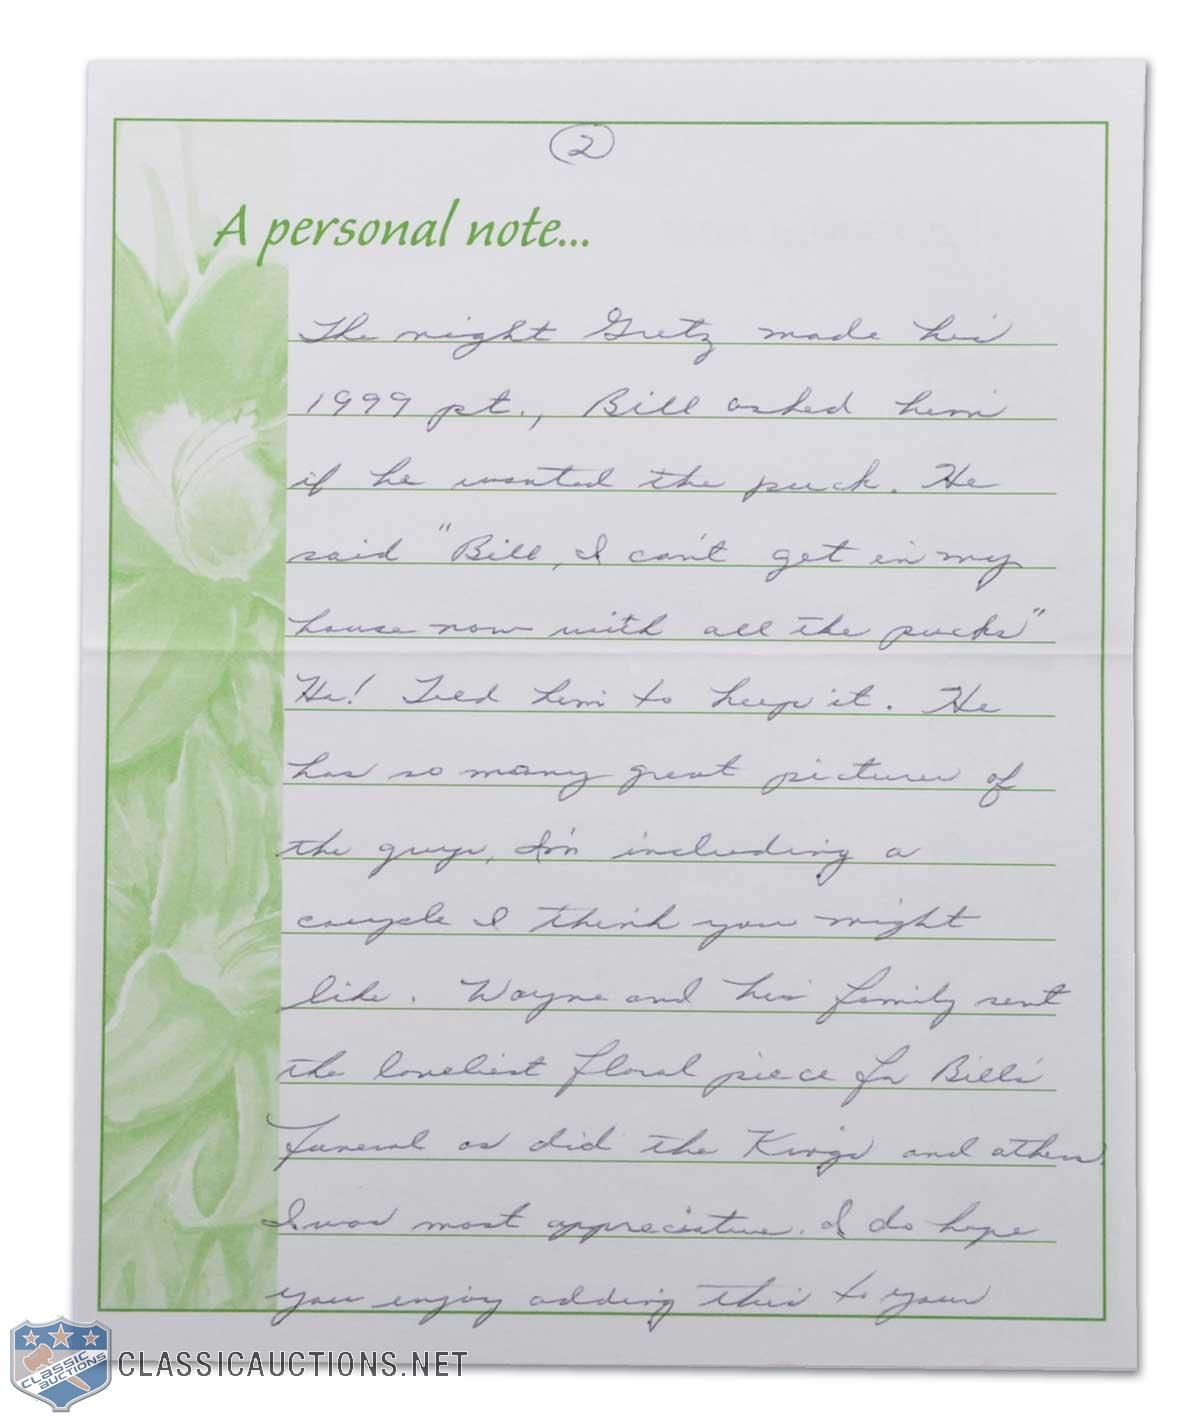 2
A personal note...
The night Gretz made his
1999 pt., Bill asked him
if he wanted the puck. He
said "Bill, I can't get in my
house now with all the pucks"
Ha! Told him to keep it. He
has so many great pictures of
the guys, I'm including a
couple I think you might
like. Wayne and his family sent
the loveliest floral piece for Bill's
funeral as did the Kings and others.
I was most appreciative. I do hope
you enjoy adding this to your
CLASSIC
AUCTIONS
CLASSICAUCTIONS.NET